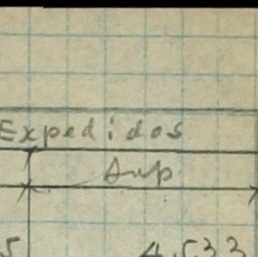 Expedidos
Sup
5 4.533